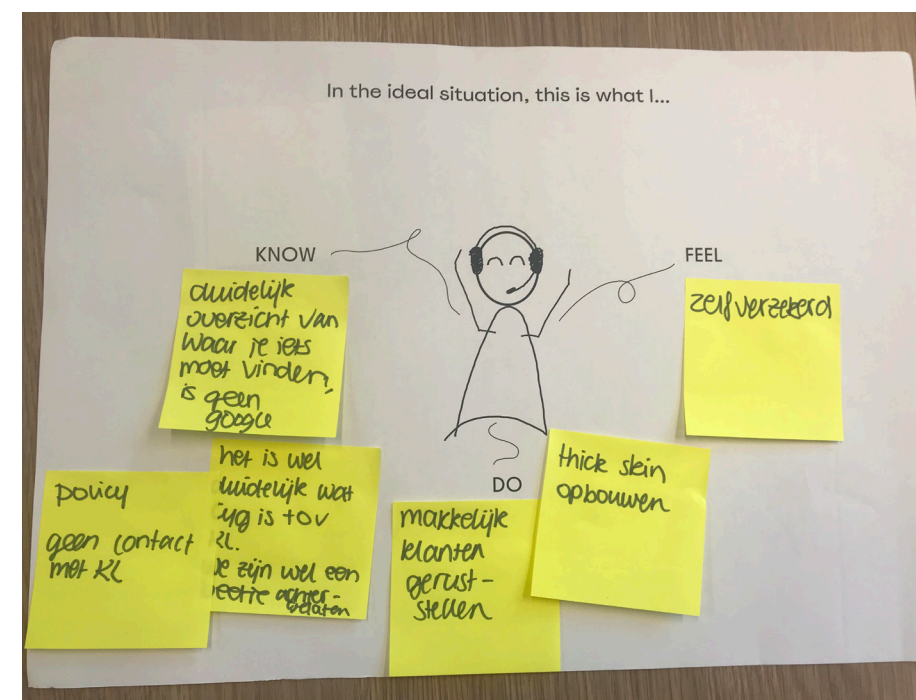 In the ideal situation, this is what I...
KNOW
FEEL
duidelijk
overzicht van
waar je iets
moet vinden,
is geen
google
zelfverzekerd
het is wel
duidelijk wat
is tov
KL.
zijn wel een
beetje achter-
gelaten
policy
geen contact
met KL
DO
makkelijk
klanten
gerust-
stellen
thick skin
opbouwen